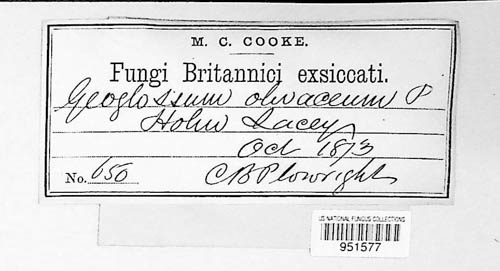 M. C. COOKE.
Fungi Britannici exsiccati.
Geoglossum olivaceum P
Holm Lacey
Oct 1873
No. 650 C B Plowright
US NATIONAL FUNGUS COLLECTIONS
951577